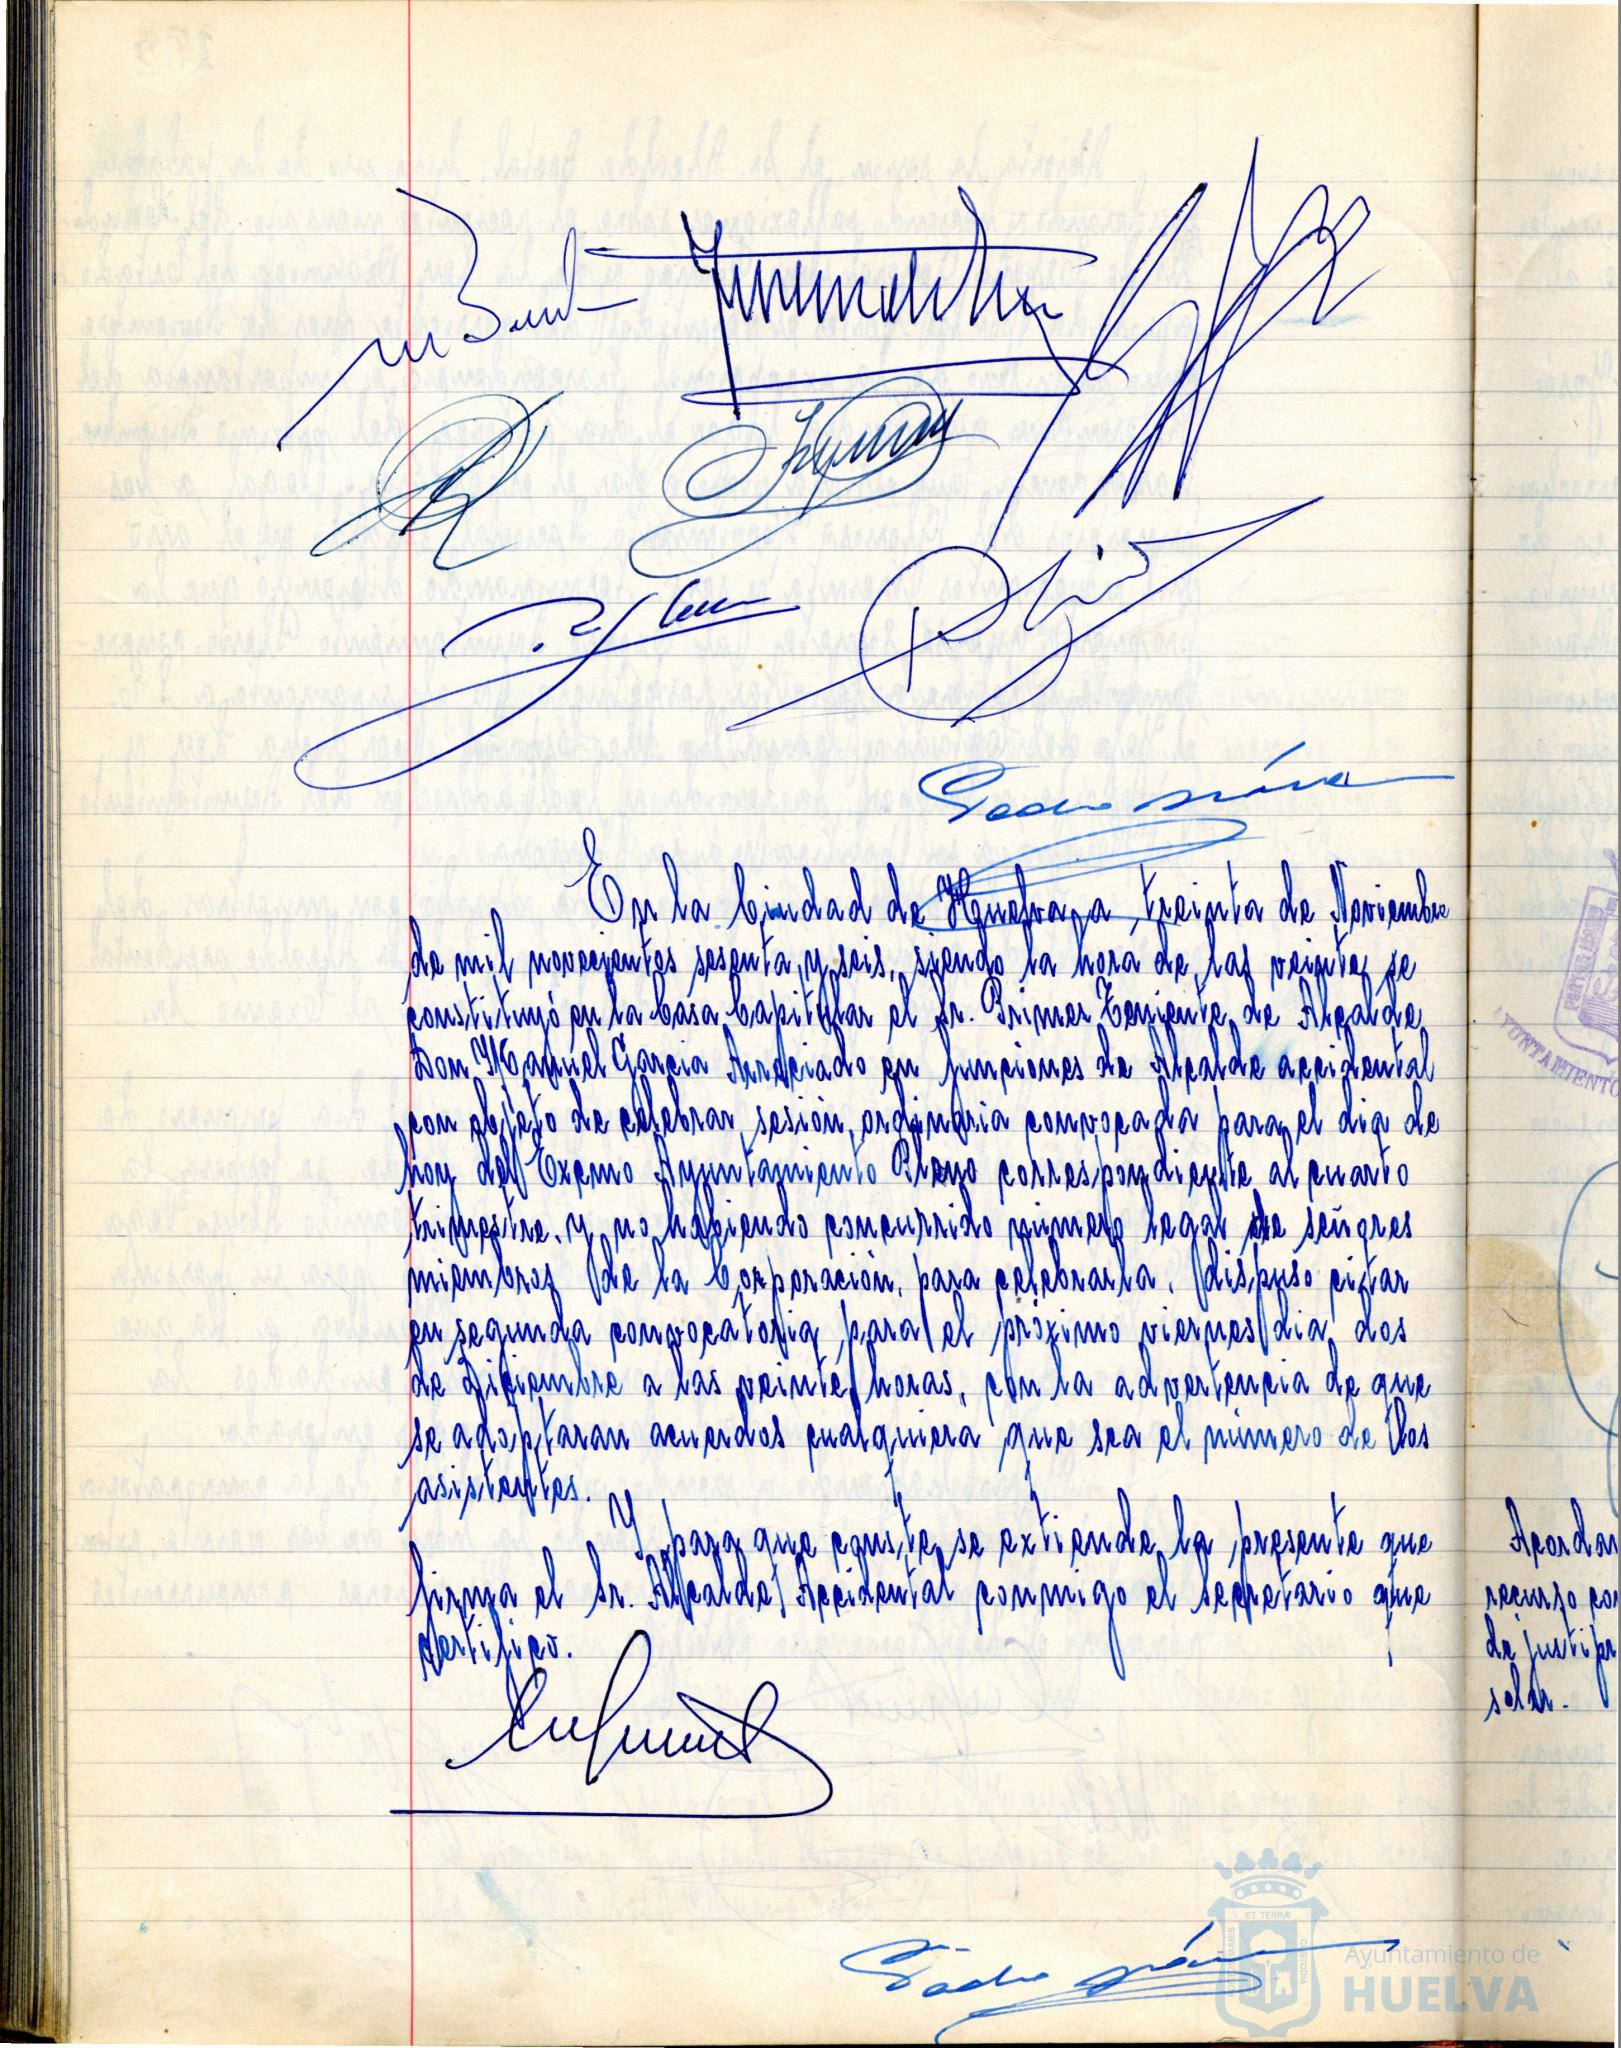 En la Ciudad de Huelva a treinta de Noviembre
de mil novecientos sesenta y seis, siendo la hora de las veinte se
constituyó en la Casa Capitular el Sr. Primer Teniente de Alcalde
Don Manuel Garcia Arreciado en funciones de Alcalde accidental
con objeto de celebrar sesión ordinaria convocada para el dia de
hoy del Excmo Ayuntamiento Pleno correspondiente al cuarto
trimestre. y no habiendo concurrido número legal de señores
miembros de la Corporación, para celebrarla, dispuso citar
en segunda convocatoria para el próximo viernes dia dos
de Diciembre a las veinte horas, con la advertencia de que
se adoptaran acuerdos cualquiera que sea el número de los
asistentes.
Y para que conste se extiende la presente que
firma el Sr. Alcalde Accidental conmigo el secretario que
certifico.
Acordar
recurso con
de justipr
solar.-
ET TERRÆ
CUSTODIA
Ayuntamiento de
HUELVA